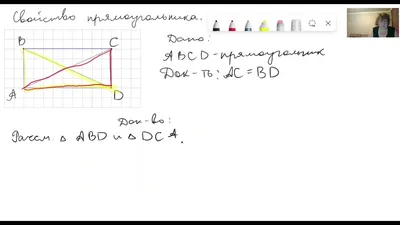 Свойство прямоугольника.
B
C
A
D
Дано:
ABCD - прямоугольник
Док-ть: AC = BD
Док-во:
Рассм. △ ABD и △ DCA.